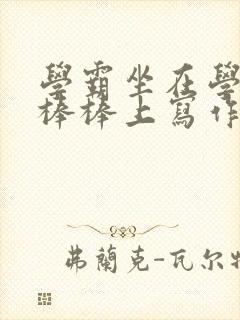 學霸坐在學
棒棒上寫作
弗蘭克-瓦尔特